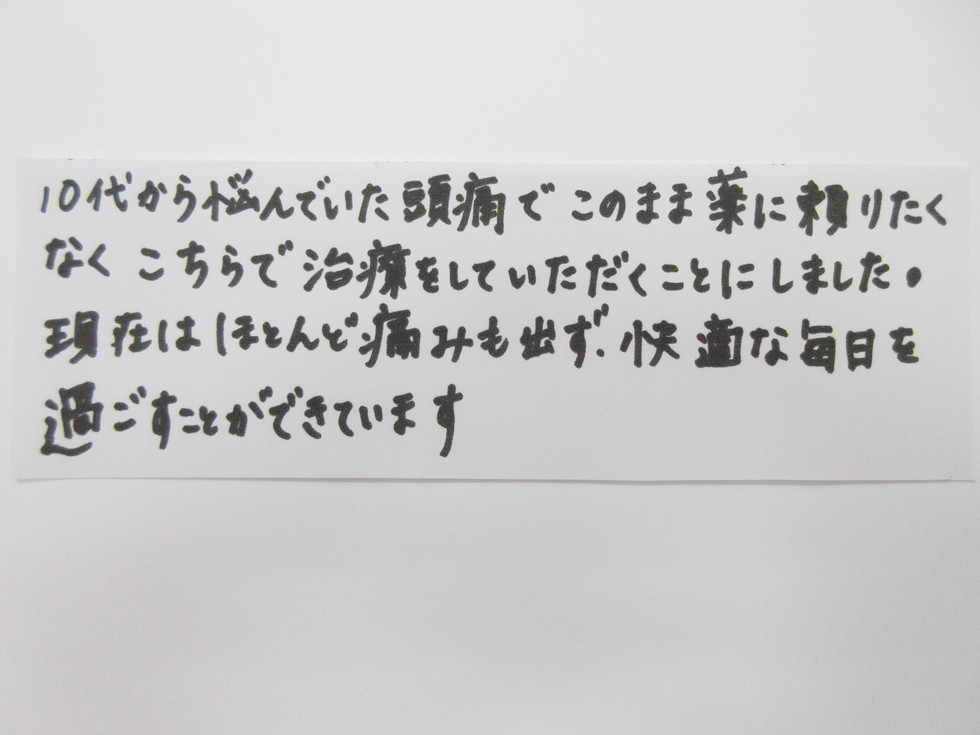 10代から悩んでいた頭痛で このまま薬に頼りたく
なく こちらで治療をしていただくことにしました。
現在はほとんど痛みも出ず、快適な毎日を
過ごすことができています